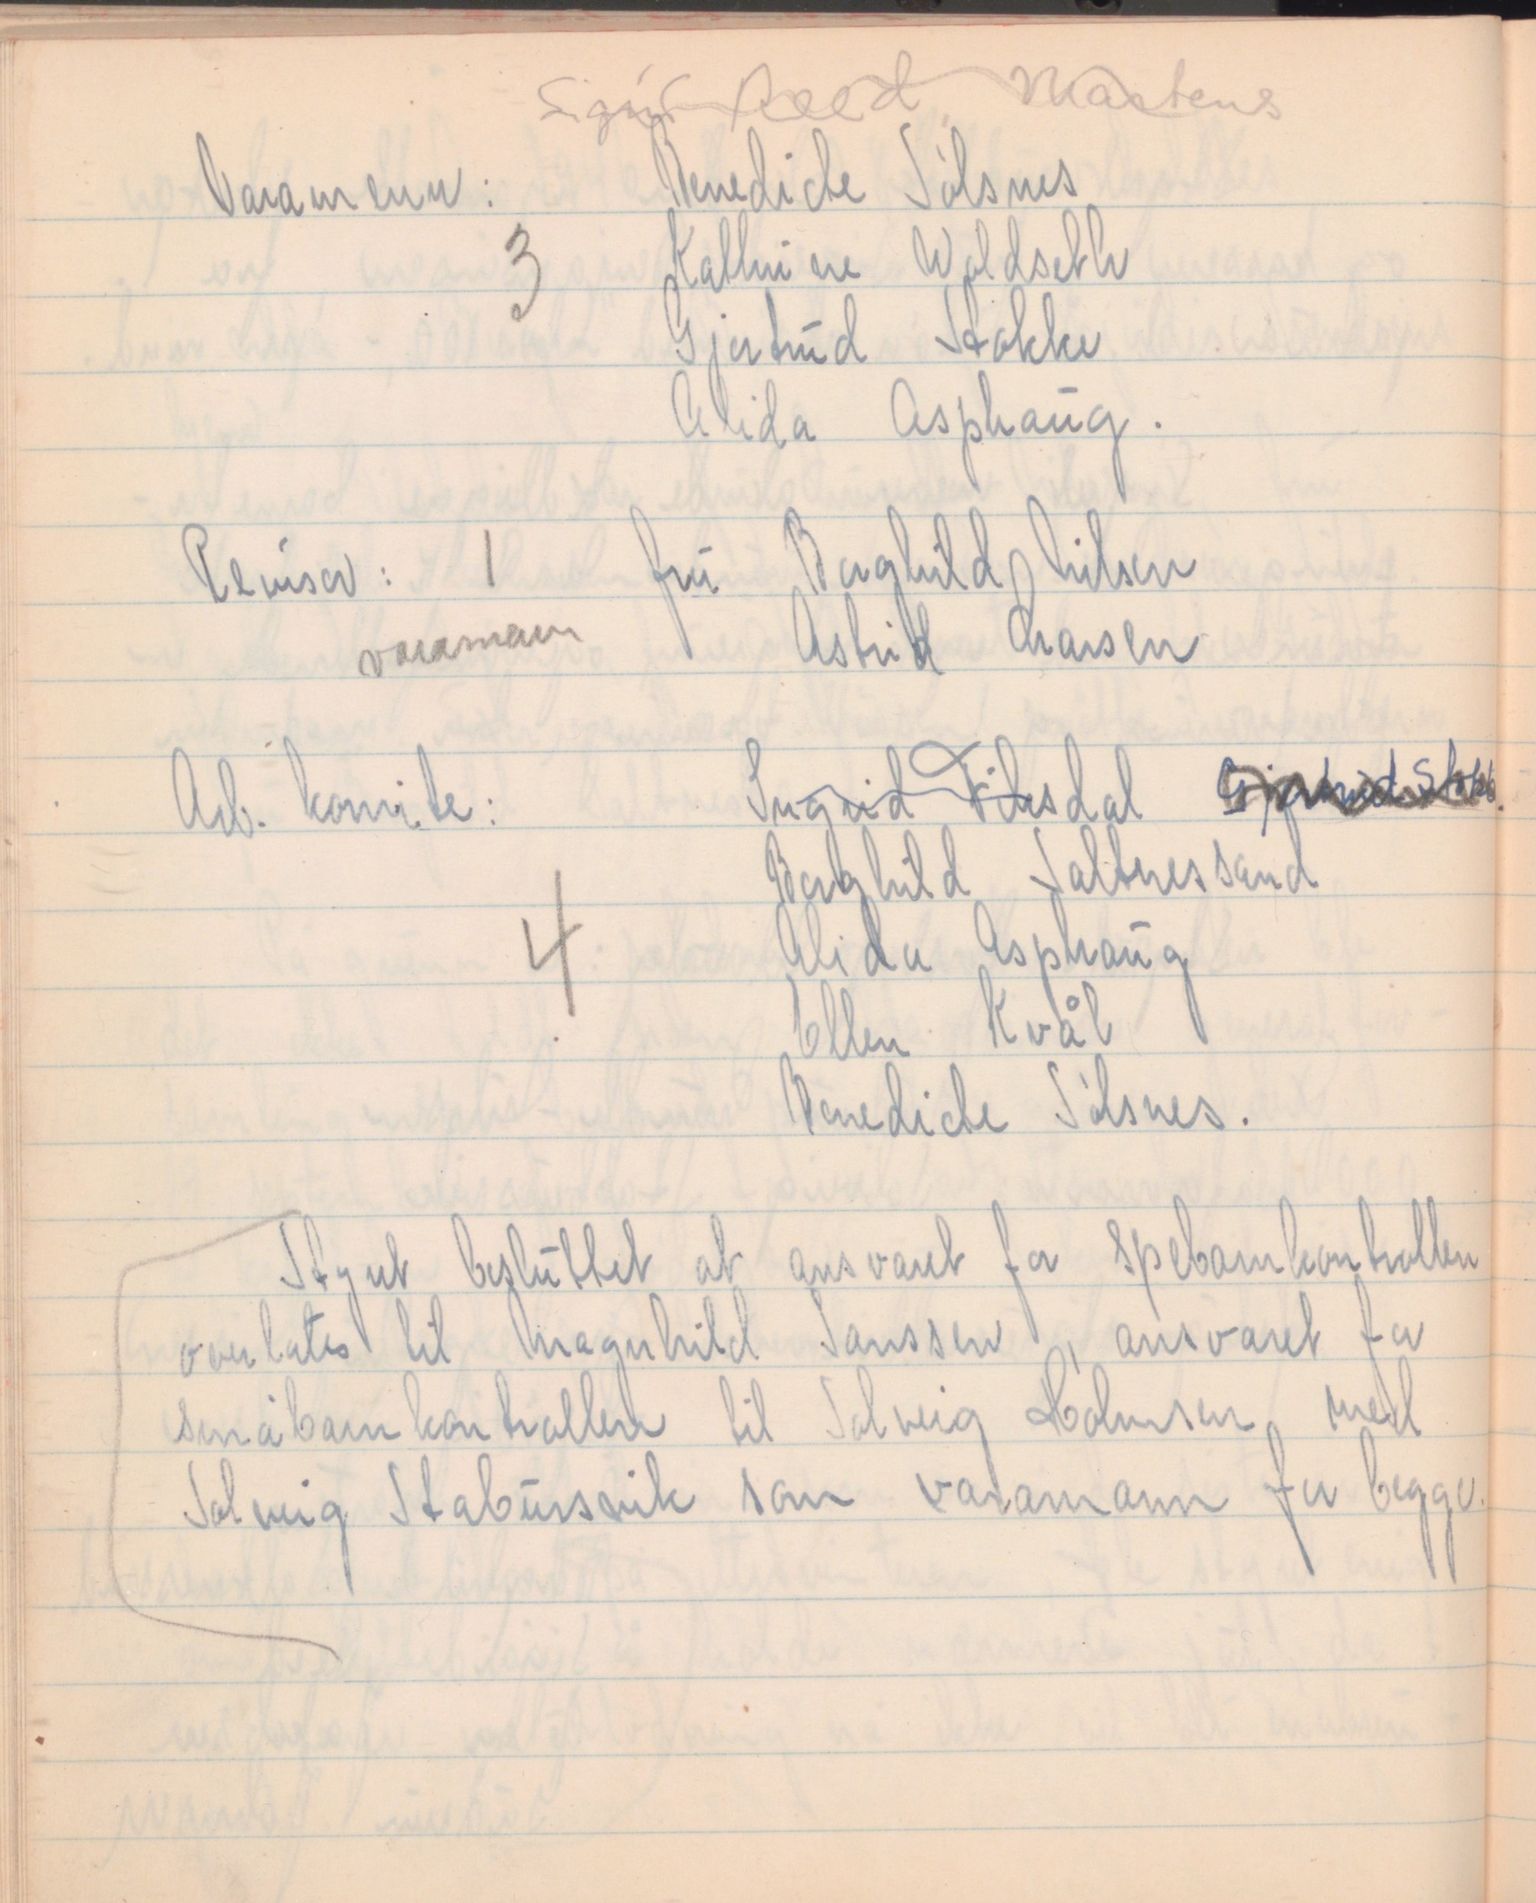 Martens
Varamenn: Benedicte Sólsnes
3 Kathrine Woldseth
Gjertrud Stokke
Alida Asphaug.
Revisor: 1 fru Borghild Nilsen
varamann Astrid Larsen
Arb. komite: Ingrid Fiksdal Gjertrud Stokk.
Borghild Saltnessand
4 Alida Asphaug
Ellen Kvål
Benedicte Sólsnes.
Styret besluttet at ansvaret for spebarnkontrollen
overlates til Magnhild Janssen, ansvaret for
småbarnkontrollen til Solveig med
Solveig Stabursvik som varamann for begge.